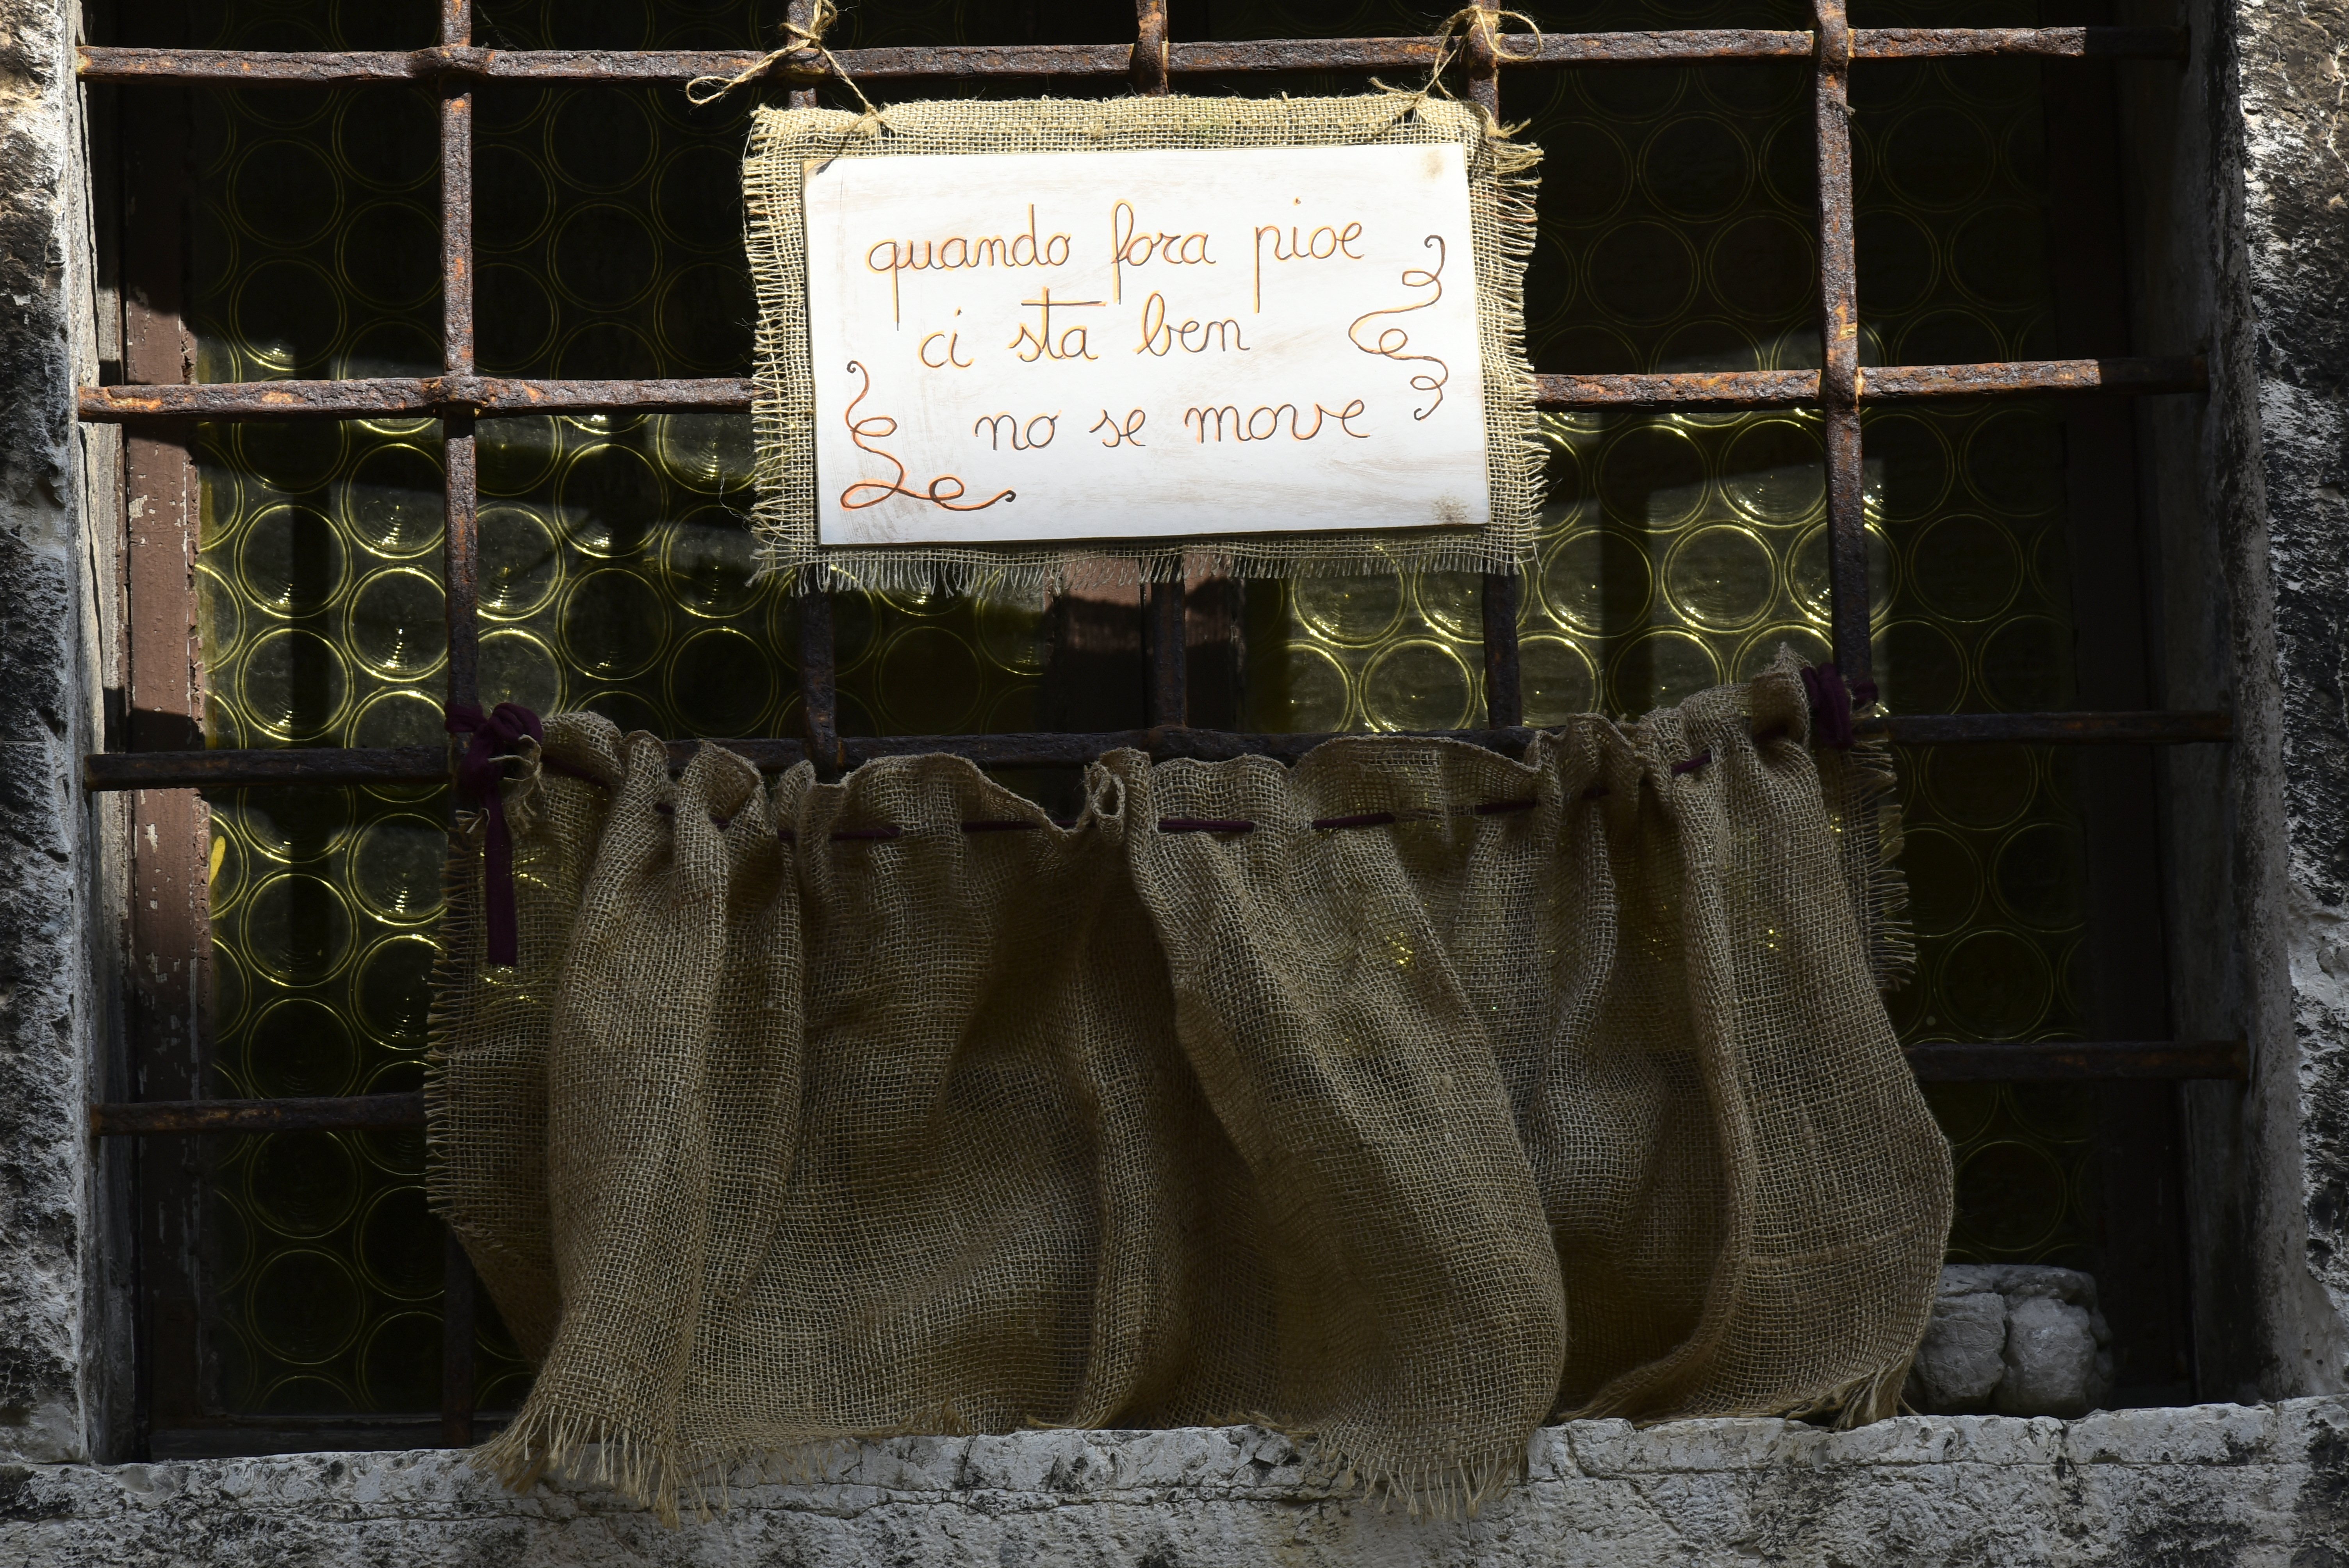 quando fora pioe
ci sta ben
no se move